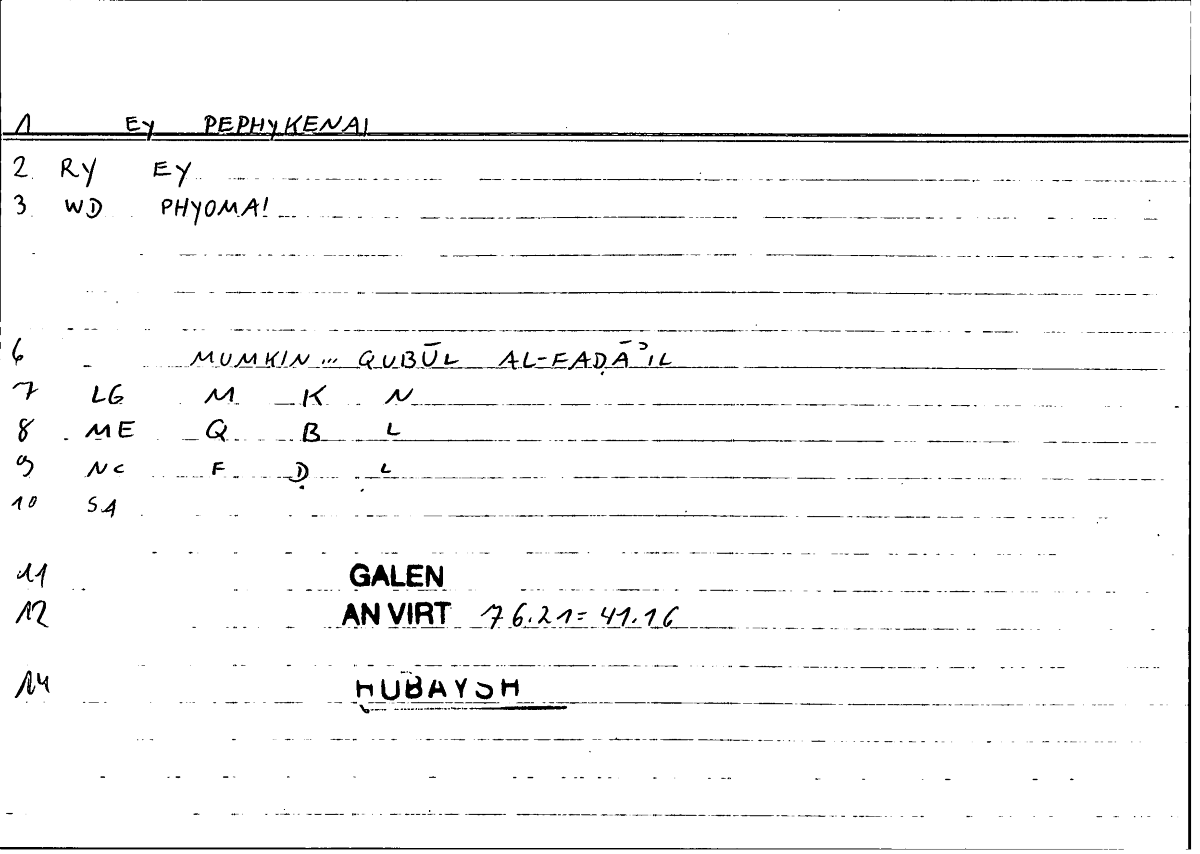 1 Ey PEPHyKENAI
2 RY EY
3 WD PHYOMAI
6 MUMKIN... QUBŪL AL-FAḌĀʾIL
7 LG M K N
8 ME Q B L
9 NC F Ḍ L
10 SA
11 GALEN
12 AN VIRT 76.21= 41.16
14 HUBAYSH